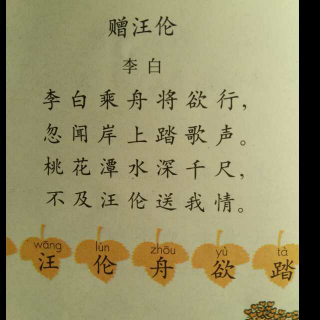 赠汪伦
李白
李白乘舟将欲行，
忽闻岸上踏歌声。
桃花潭水深千尺，
不及汪伦送我情。
wāng lún zhōu yù tà
汪 伦 舟 欲 踏